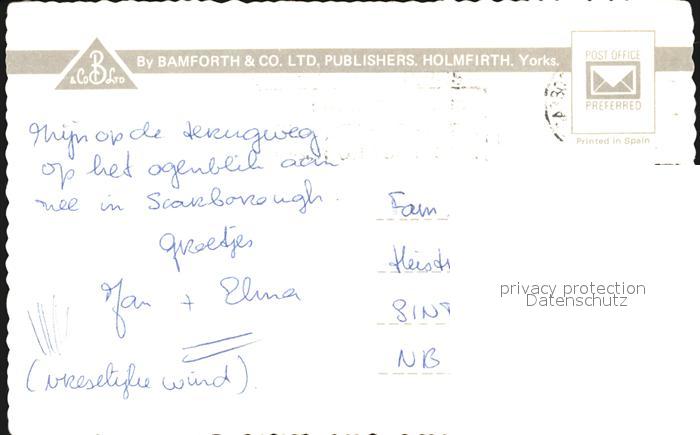 By BAMFORTH & CO. LTD, PUBLISHERS. HOLMFIRTH, Yorks.
B
& Co LTD
POST OFFICE
PREFERRED
Printed in Spain
op de terugweg.
op het ogenblik aan
zee in Scarborough.
groetjes
Jan + Elma
(vreselijke wind).
Fam.
Heist
SINT
NB
privacy protection
Datenschutz